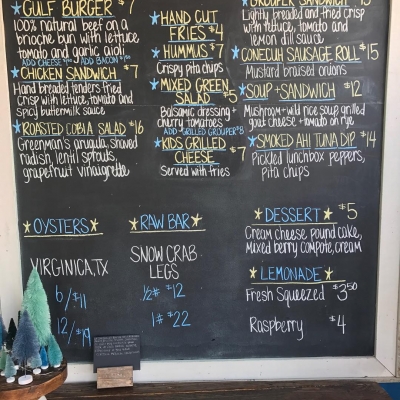 GULF BURGER $7
100% natural beef on a
brioche bun with lettuce
tomato and garlic aioli
ADD CHEESE ADD BACON
CHICKEN SANDWICH $7
Hand breaded tenders fried
crisp with lettuce, tomato and
spicy buttermilk sauce
ROASTED COBIA SALAD $16
Greenman's arugula, shaved
radish, lentil sprouts,
grapefruit vinaigrette
HAND CUT
FRIES $4
HUMMUS $7
Crispy pita chips
MIXED GREEN
SALAD $5
Balsamic dressing +
cherry tomatoes
ADD GRILLED GROUPER $8
KIDS GRILLED
CHEESE $7
Served with fries
GROUPER SANDWICH $15
Lightly breaded and fried crisp
with lettuce, tomato and
lemon dill sauce
CONECUH SAUSAGE ROLL $15
Mustard braised onions
SOUP + SANDWICH $12
Mushroom + wild rice soup, grilled
goat cheese + tomato on rye
SMOKED AHI TUNA DIP $14
Pickled lunchbox peppers,
pita chips
OYSTERS
VIRGINICA, TX
6/$11
12/$19
RAW BAR
SNOW CRAB
LEGS
½# $12
1# $22
DESSERT $5
Cream cheese pound cake,
Mixed berry compote, cream
LEMONADE
Fresh Squeezed $3.50
Raspberry $4